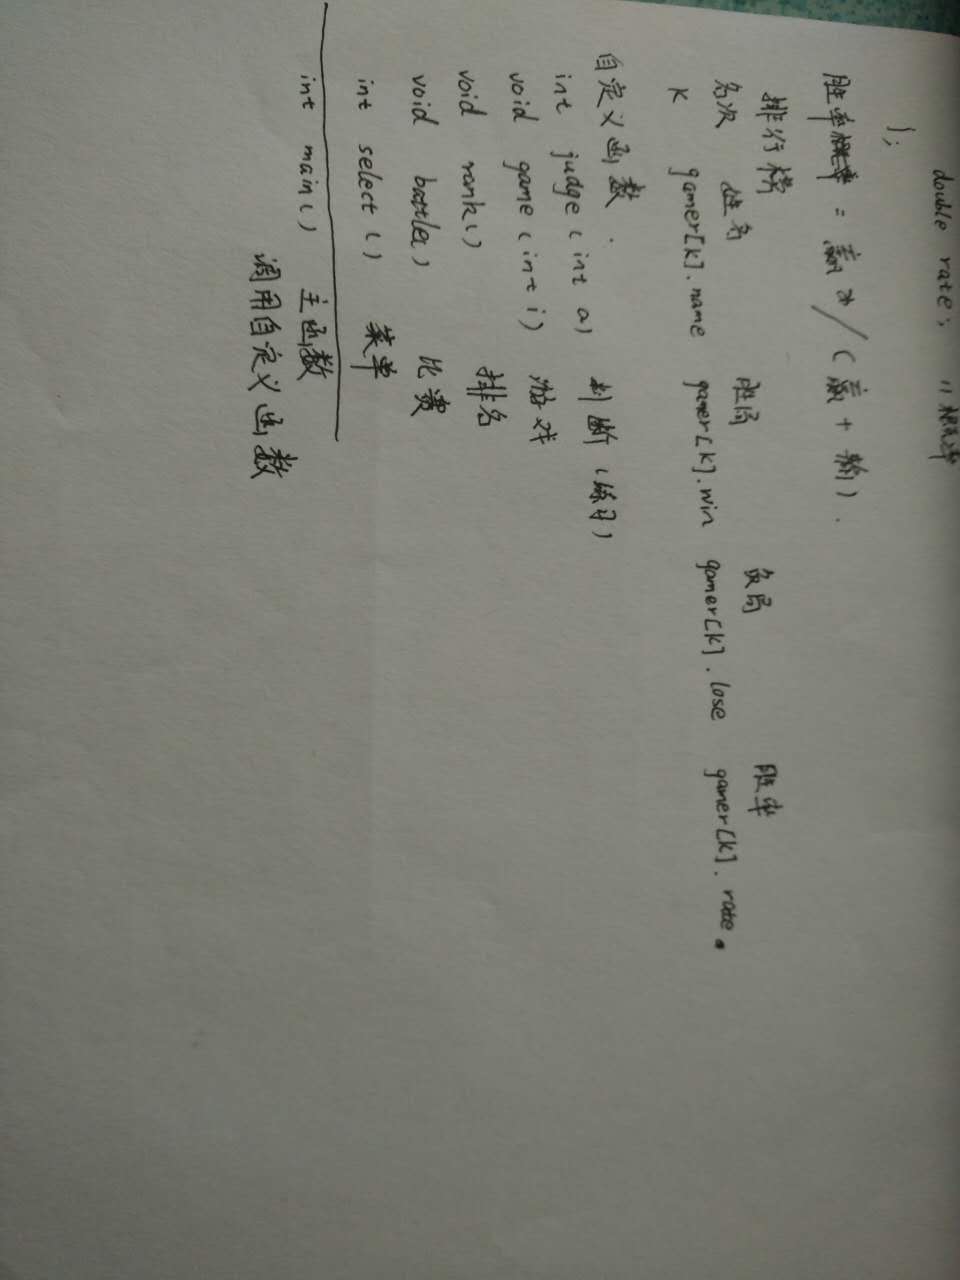 double rate; //概率
};
胜率 = 赢 / (赢+输).
排行榜
名次 姓名 胜局 负局 胜率
K gamer[k].name gamer[k].win gamer[k].lose gamer[k].rate.
自定义函数.
int judge(int a) 判断(练习)
void game(int i) 游戏
void rank() 排名
void battle() 比赛
int select() 菜单
int main() 主函数
调用自定义函数